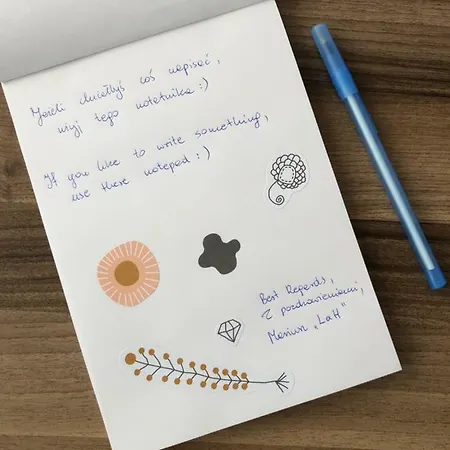 Jeśli chciałbyś coś napisać,
użyj tego notatnika :)
If you like to write something,
use there notepad :)
Best Regards,
Z pozdrowieniami,
Mariusz „LaH”